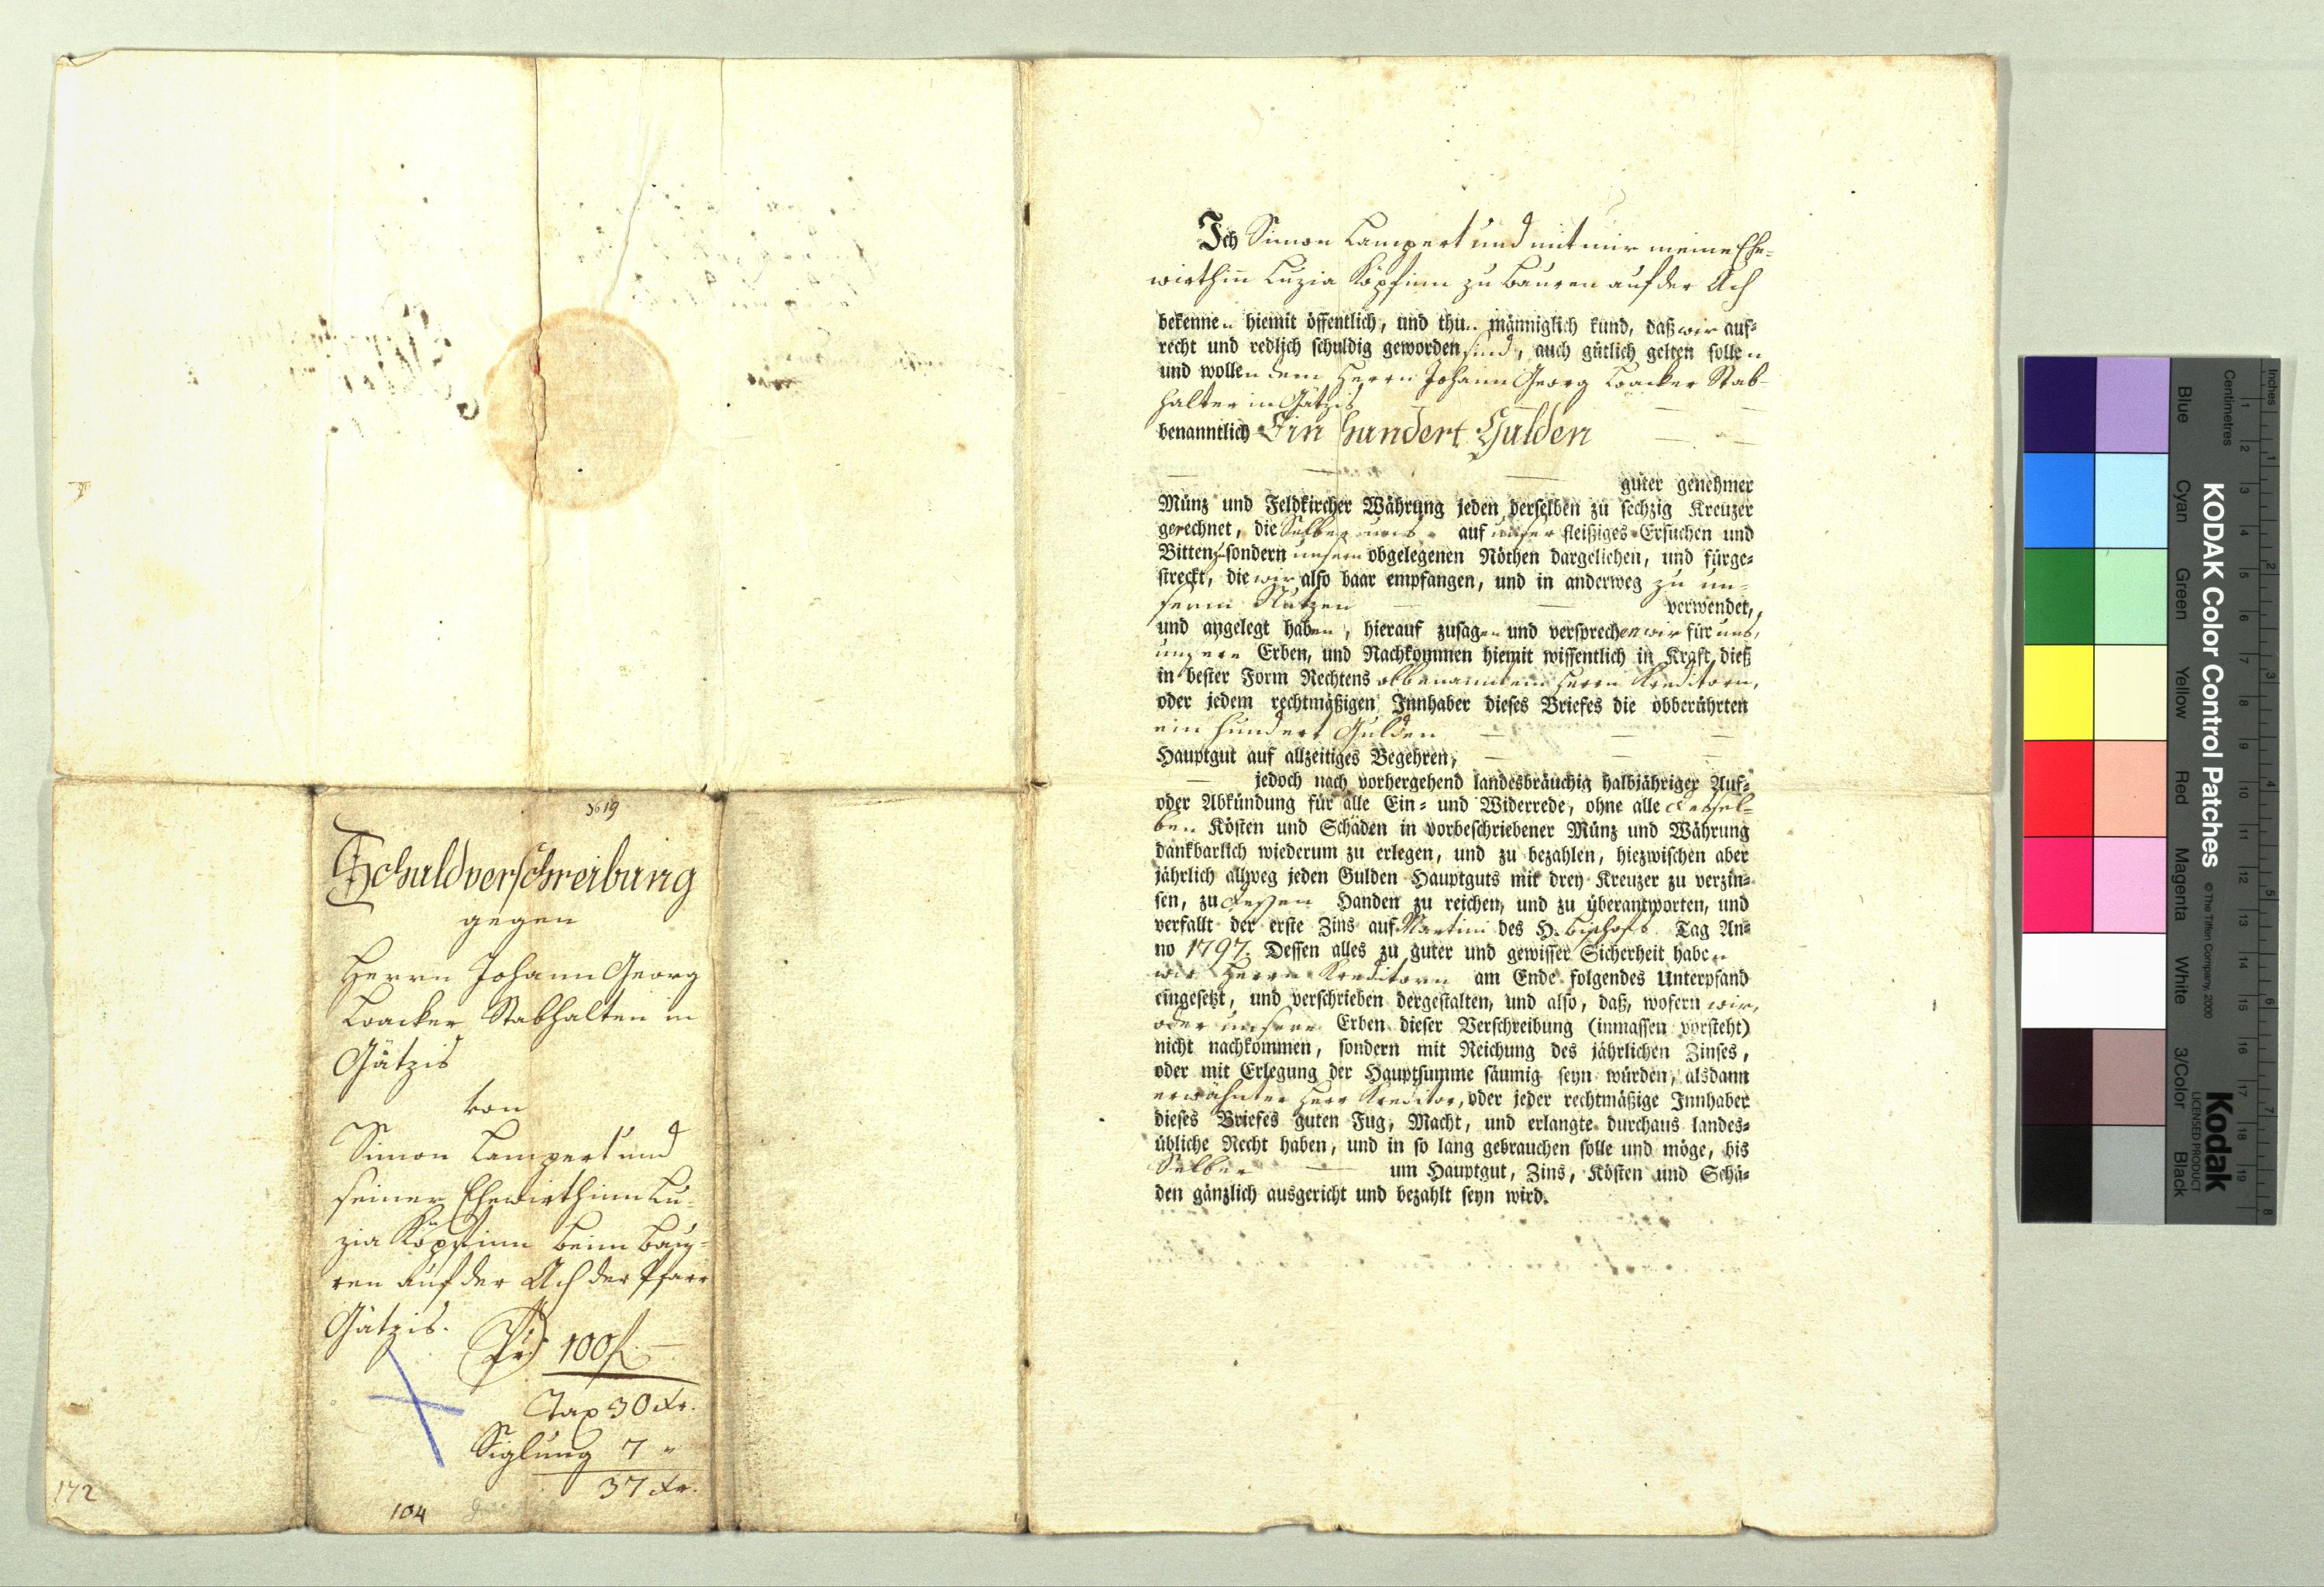 No 19
Schuldverschreibung
gegen
Herrn Johann Georg
Loacker Stabhalten in
Gätzis
von
Simon Lampert und
seiner Ehewirthinn Lu-
zia Köpfinn beim Bau-
ren auf der Ach der Pfarr
Gätzis.
Pr) 100 f. —
Tax 30 xr.
Siglung 7 "
37 xr.
104
172
Ich Simon Lampert und mit mir meine Ehe-
wirthiñ Luzia Köpfinn zu Bauren auf der Ach
bekennen hiemit öffentlich, und thun männiglich kund, daß wir auf-
recht und redlich schuldig geworden sind, auch gütlich gelten sollen
und wollen dem Herrn Johann Georg Loacker Stab-
halter in Gätzis
benanntlich Ein Hundert Gulden
guter genehmer
Münz und Feldkircher Währung jeden derselben zu sechzig Kreuzer
gerechnet, die Selber uns auf unser fleißiges Ersuchen und
Bitten, sondern unsern obgelegenen Nöthen dargeliehen, und fürge-
streckt, die wir also baar empfangen, und in anderweg zu un-
serm Nutzen verwendet,
und angelegt haben, hierauf zusagen und versprechen wir für uns,
unsere Erben, und Nachkommen hiemit wissentlich in Kraft dieß
in bester Form Rechtens obbenanntem Herrn Kreditorn,
oder jedem rechtmäßigen Innhaber dieses Briefes die obberührten
ein hundert Gulden
Hauptgut auf allzeitiges Begehren,
jedoch nach vorhergehend landesbräuchig halbjähriger Auf-
oder Abkündung für alle Ein- und Widerrede, ohne alle dessel-
ben Kösten und Schäden in vorbeschriebener Münz und Währung
dankbarlich wiederum zu erlegen, und zu bezahlen, hiezwischen aber
jährlich allweg jeden Gulden Hauptguts mit drey Kreuzer zu verzin-
sen, zu dessen Handen zu reichen, und zu überantworten, und
verfallt der erste Zins auf Martini des H. Bischofs Tag An-
no 1797. Dessen alles zu guter und gewisser Sicherheit haben
wir Herrn Kreditorn am Ende folgendes Unterpfand
eingesetzt, und verschrieben dergestalten, und also, daß, wofern wir,
oder unsere Erben dieser Verschreibung (inmassen vorsteht)
nicht nachkommen, sondern mit Reichung des jährlichen Zinses,
oder mit Erlegung der Hauptsumme säumig seyn würden, alsdann
erwähnter Herr Kreditor, oder jeder rechtmäßige Innhaber
dieses Briefes guten Fug, Macht, und erlangte durchaus landes-
übliche Recht haben, und in so lang gebrauchen solle und möge, bis
Selber um Hauptgut, Zins, Kösten und Schä-
den gänzlich ausgericht und bezahlt seyn wird.
KODAK Color Control Patches
© The Tiffen Company, 2000
Kodak
LICENSED PRODUCT
Blue Cyan Green Yellow Red Magenta White 3/Color Black
Centimetres 1 2 3 4 5 6 7 8 9 10 11 12 13 14 15 16 17 18 19
Inches 1 2 3 4 5 6 7 8